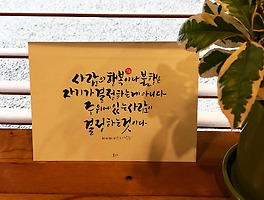 사람의 행복이나 불행은
자기가 결정하는게 아니다
주위에 있는 사람이
결정하는 것이다